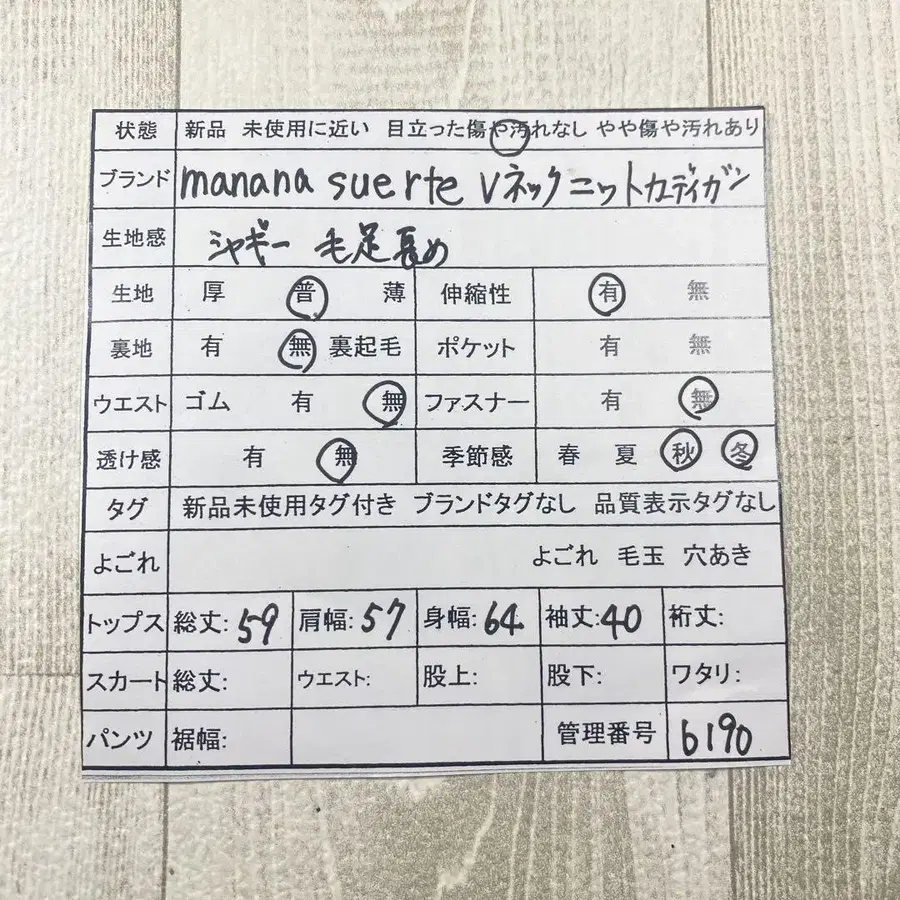 状態 新品 未使用に近い 目立った傷や汚れなし やや傷や汚れあり
ブランド manana suerte Vネックニットカーディガン
生地感 シャギー 毛足長め
生地 厚 普 薄 伸縮性 有 無
裏地 有 無 裏起毛 ポケット 有 無
ウエスト ゴム 有 無 ファスナー 有 無
透け感 有 無 季節感 春 夏 秋 冬
タグ 新品未使用タグ付き ブランドタグなし 品質表示タグなし
よごれ よごれ 毛玉 穴あき
トップス 総丈:59 肩幅:57 身幅:64 袖丈:40 裄丈:
スカート 総丈: ウエスト: 股上: 股下: ワタリ:
パンツ 裾幅: 管理番号 6190